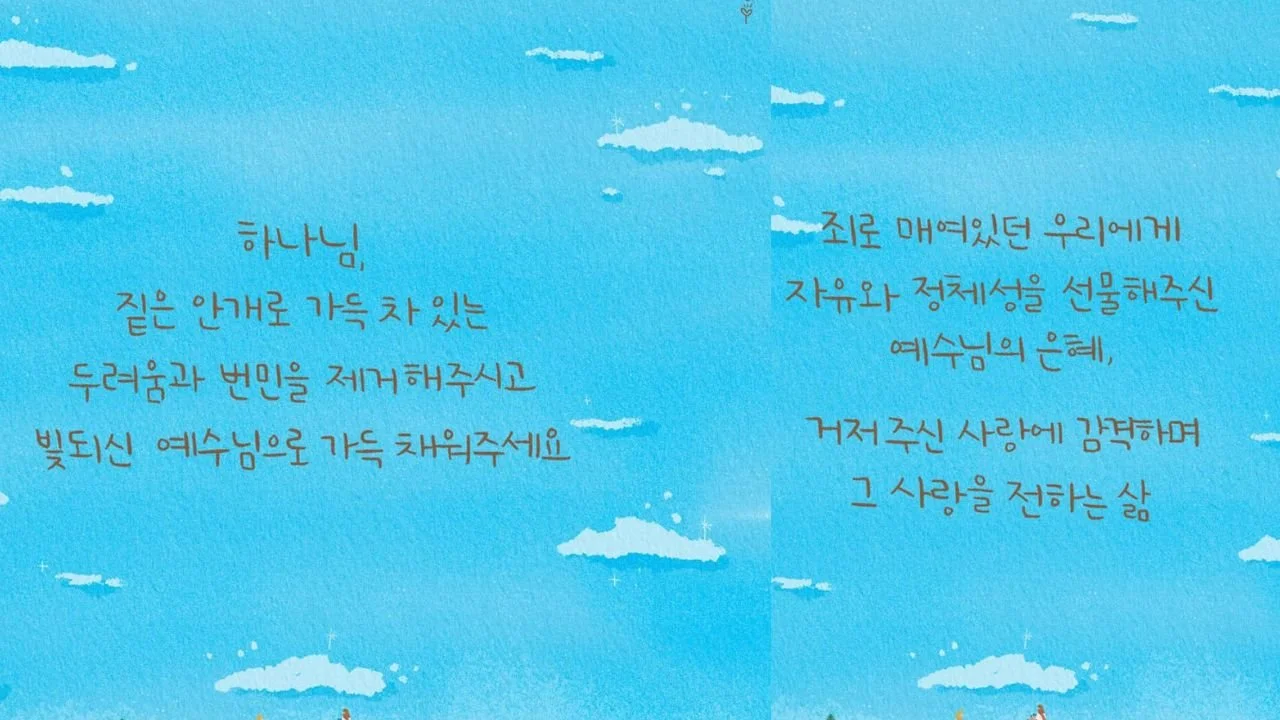 하나님,
짙은 안개로 가득 차 있는
두려움과 번민을 제거해주시고
빛되신 예수님으로 가득 채워주세요
죄로 매여있던 우리에게
자유와 정체성을 선물해주신
예수님의 은혜,
거저 주신 사랑에 감격하며
그 사랑을 전하는 삶